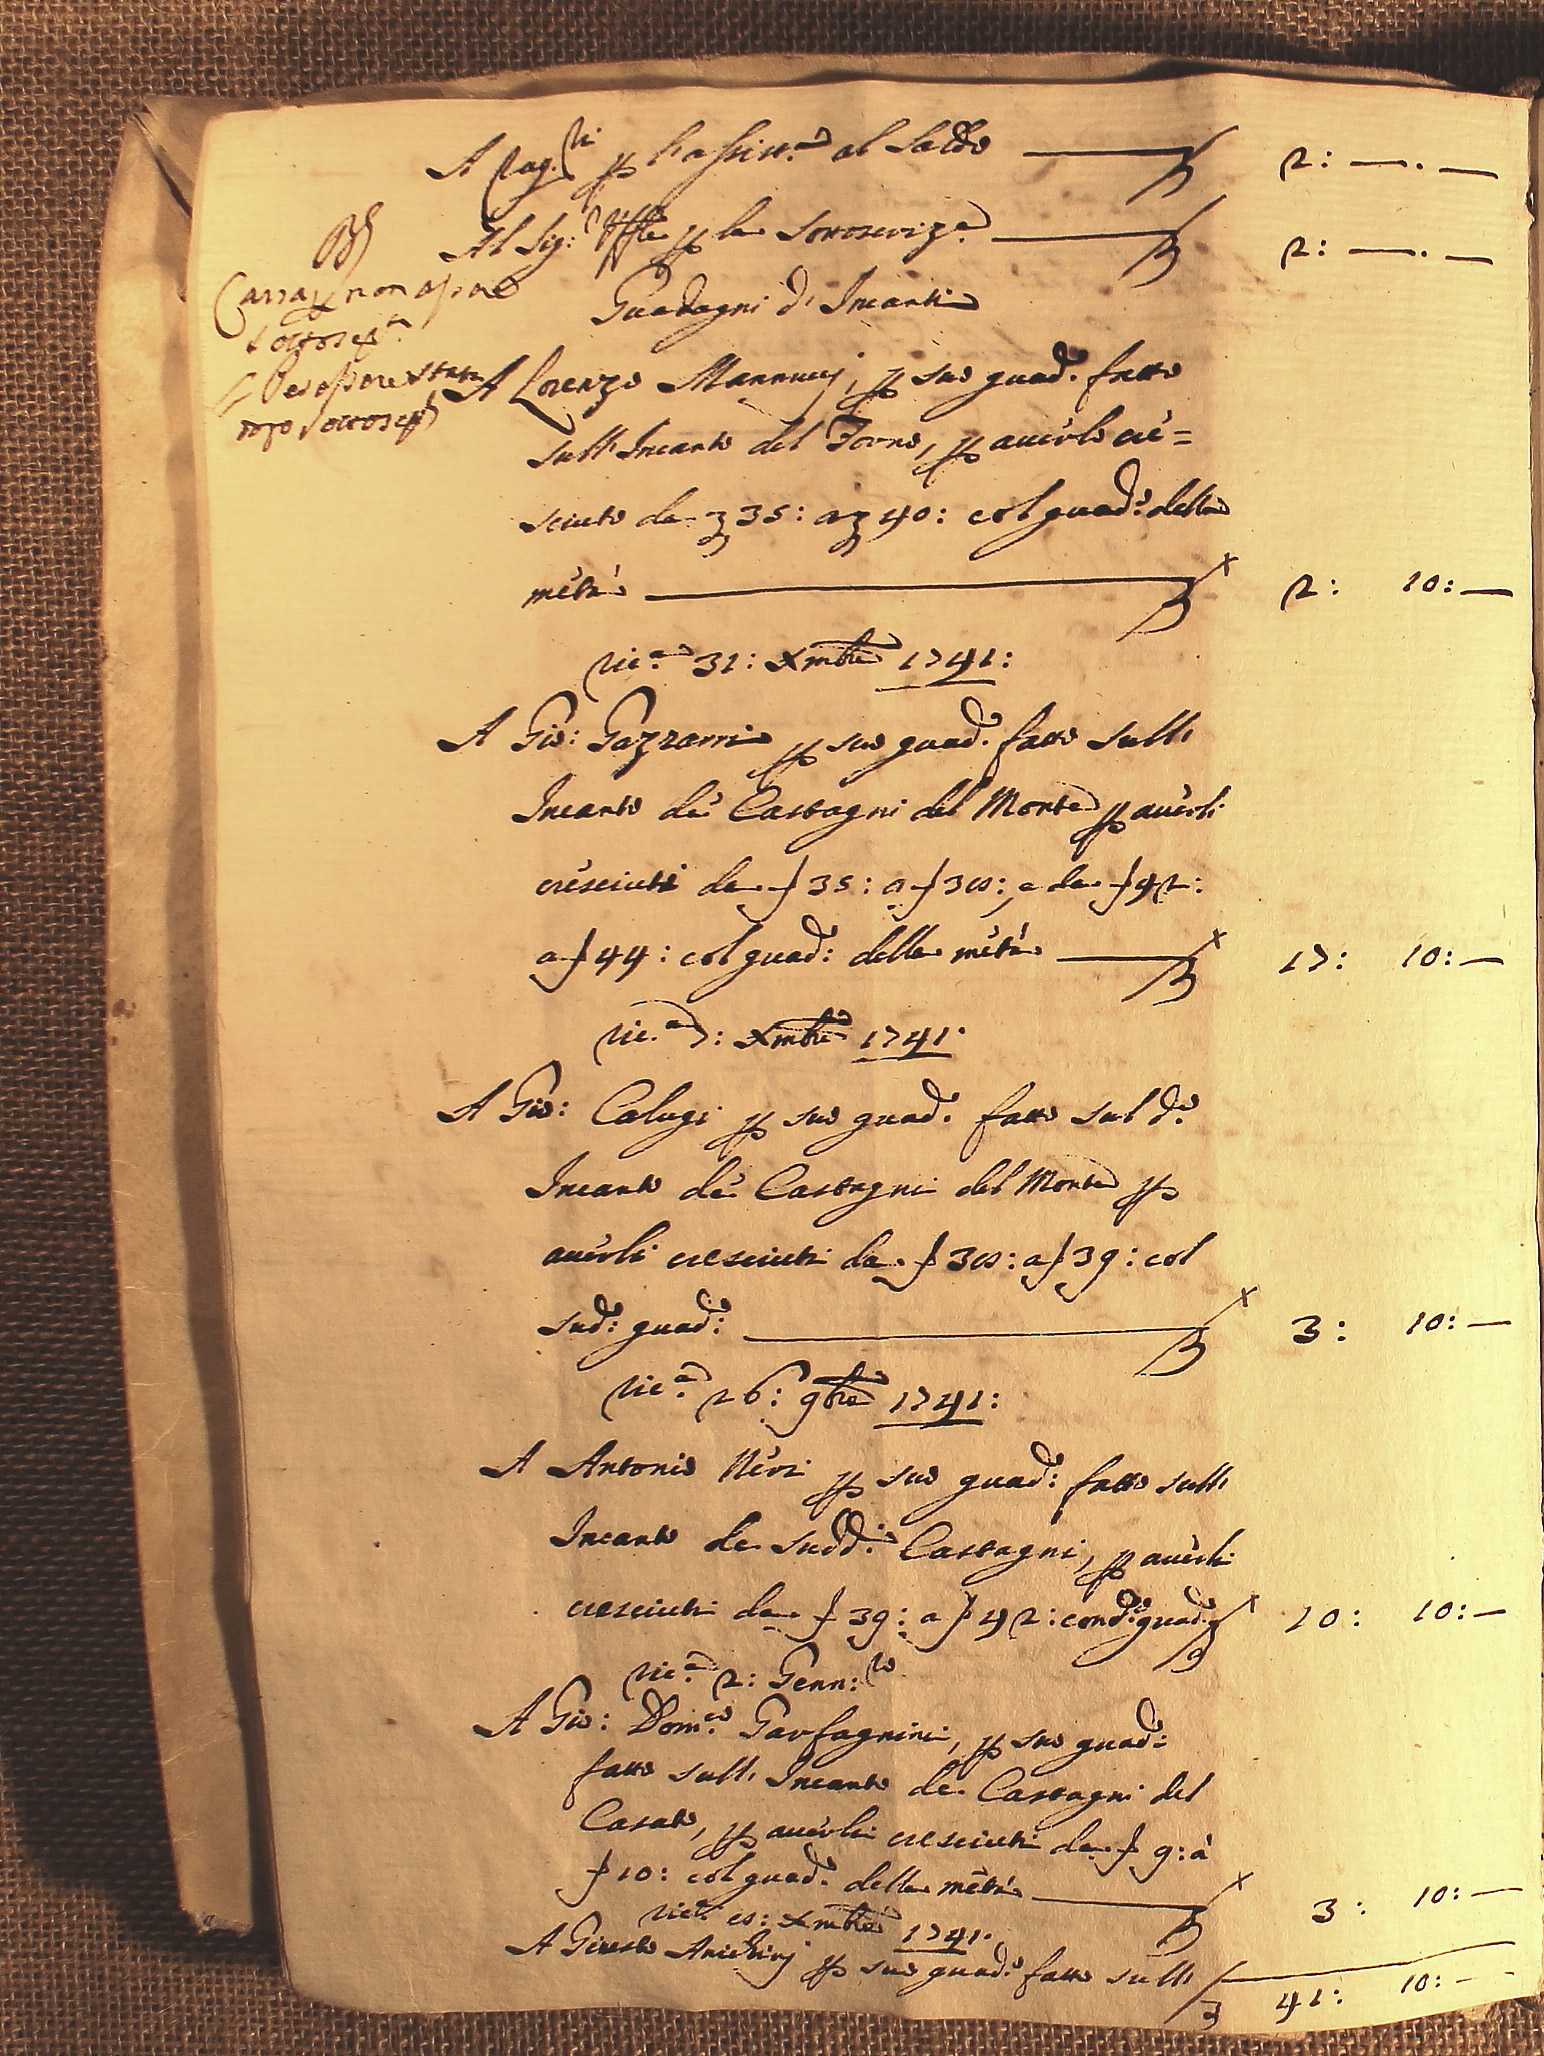 A Rag.ti p l'assist.a al Saldo — 2: —. —
Al Sig: Uffle p la soroseriz.e — 2: —. —
Guadagni d'Incanti
non
A Lorenzo Mannucj, p suo guad.o fatto
sull'Incanto del Forno, p avérlo cré=
sciuto da 35: a 40: col guad.o della
métá — 2: 10: —
Ric.a 31: Xmbre 1741:
A Gio: Gazzarri p suo guad.o fatto sull'
Incanto dé Castagni del Monte p avérli
crésciuti da f 35: a f 36: e da f 42:
a f 44: col guad.o della métá — 17: 10: —
Ric.a 7: Xmbre 1741.
A Gio: Calugi p suo guad.o fatto sul d.o
Incanto dé Castagni del Monte p
avérli cresciuti da f 36: a f 39: col
sud.o guad.o — 3: 10: —
Ric.a 26: 9bre 1741:
A Antonio Néri p suo guad.o fatto sull'
Incanto de sudd.i Castagni, p avérli
cresciuti da f 39: a f 42: con d.o guad.o 10: 10: —
Ric.a 2: Genn:ro
A Gio: Dom.co Garfagnini, p suo guad.o
fatto sull'Incanto de Castagni del
Casato, p avérli cresciuti da f 9: á
f 10: col guad.o della métá — 3: 10: —
Ric.a 6: Xmbre 1741.
A p suo guad.o fatto sull' 41: 10: —